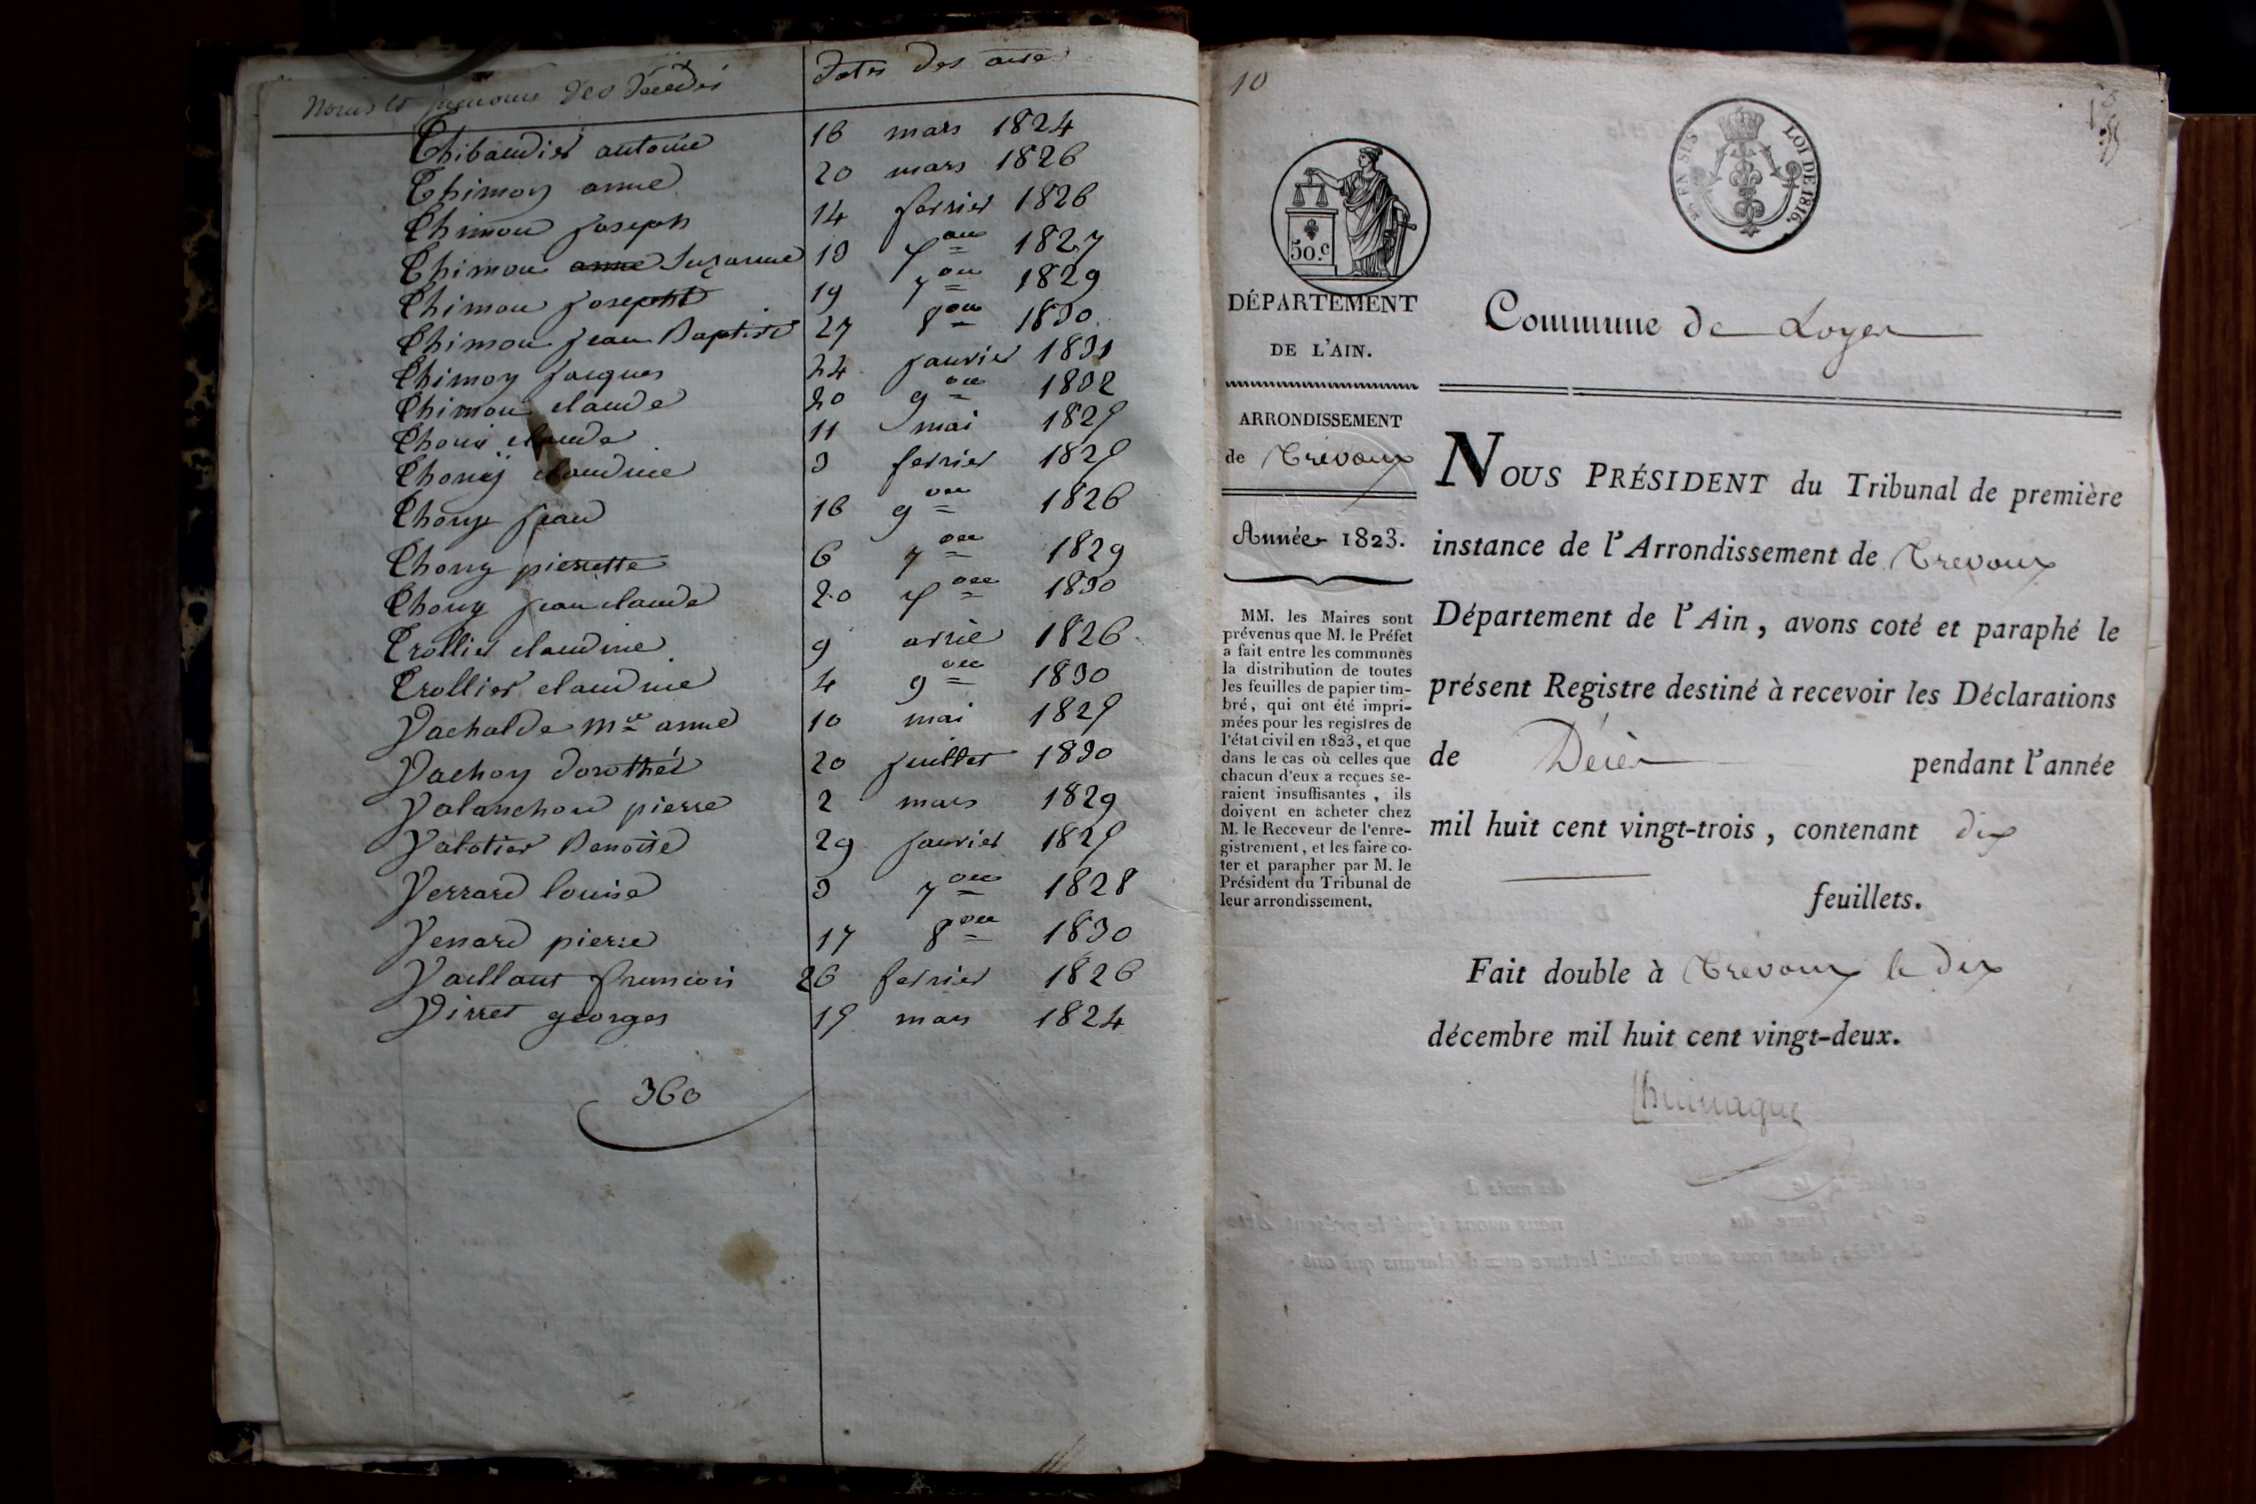 Noms et prenoms des décédés Dates des actes
Thibaudier antoine 16 mars 1824
Thimon anne 20 mars 1826
Thimon Joseph 14 fevrier 1826
Thimon anne Suzanne 19 7bre 1827
Thimon Joseph 19 7bre 1829
Thimon Jean Baptiste 27 8bre 1830
Thimon Jacques 24 janvier 1831
Thimon claude 20 9bre 1832
Thony claude 11 mai 1825
Thony claudine 3 fevrier 1825
Thony Jean 16 9bre 1826
Thony pierrette 6 7bre 1829
Thony Jean claude 20 7bre 1830
Trollier claudine 9 avril 1826
Trollier claudine 4 9bre 1830
Vachalde Mie anne 10 mai 1825
Vachon dorothée 20 juillet 1830
Valanchon pierre 2 mars 1829
Valotier Benoite 29 janvier 1825
Verrard louise 3 7bre 1828
Venard pierre 17 8bre 1830
Vaillant francois 26 fevrier 1826
Virret georges 15 mars 1824
360
10
EN SUS
LOI DE 1816.
50.c
DÉPARTEMENT
DE L'AIN.
ARRONDISSEMENT
de Trévoux
Année 1823.
MM. les Maires sont
prévenus que M. le Préfet
a fait entre les communes
la distribution de toutes
les feuilles de papier tim-
bré, qui ont été impri-
mées pour les registres de
l'état civil en 1823, et que
dans le cas où celles que
chacun d'eux a reçues se-
raient insuffisantes, ils
doivent en acheter chez
M. le Receveur de l'enre-
gistrement, et les faire co-
ter et parapher par M. le
Président du Tribunal de
leur arrondissement.
Commune de Loyes
NOUS PRÉSIDENT du Tribunal de première
instance de l'Arrondissement de Trevoux
Département de l'Ain, avons coté et paraphé le
présent Registre destiné à recevoir les Déclarations
de Décès pendant l'année
mil huit cent vingt-trois, contenant dix
feuillets.
Fait double à Trevoux le dix
décembre mil huit cent vingt-deux.